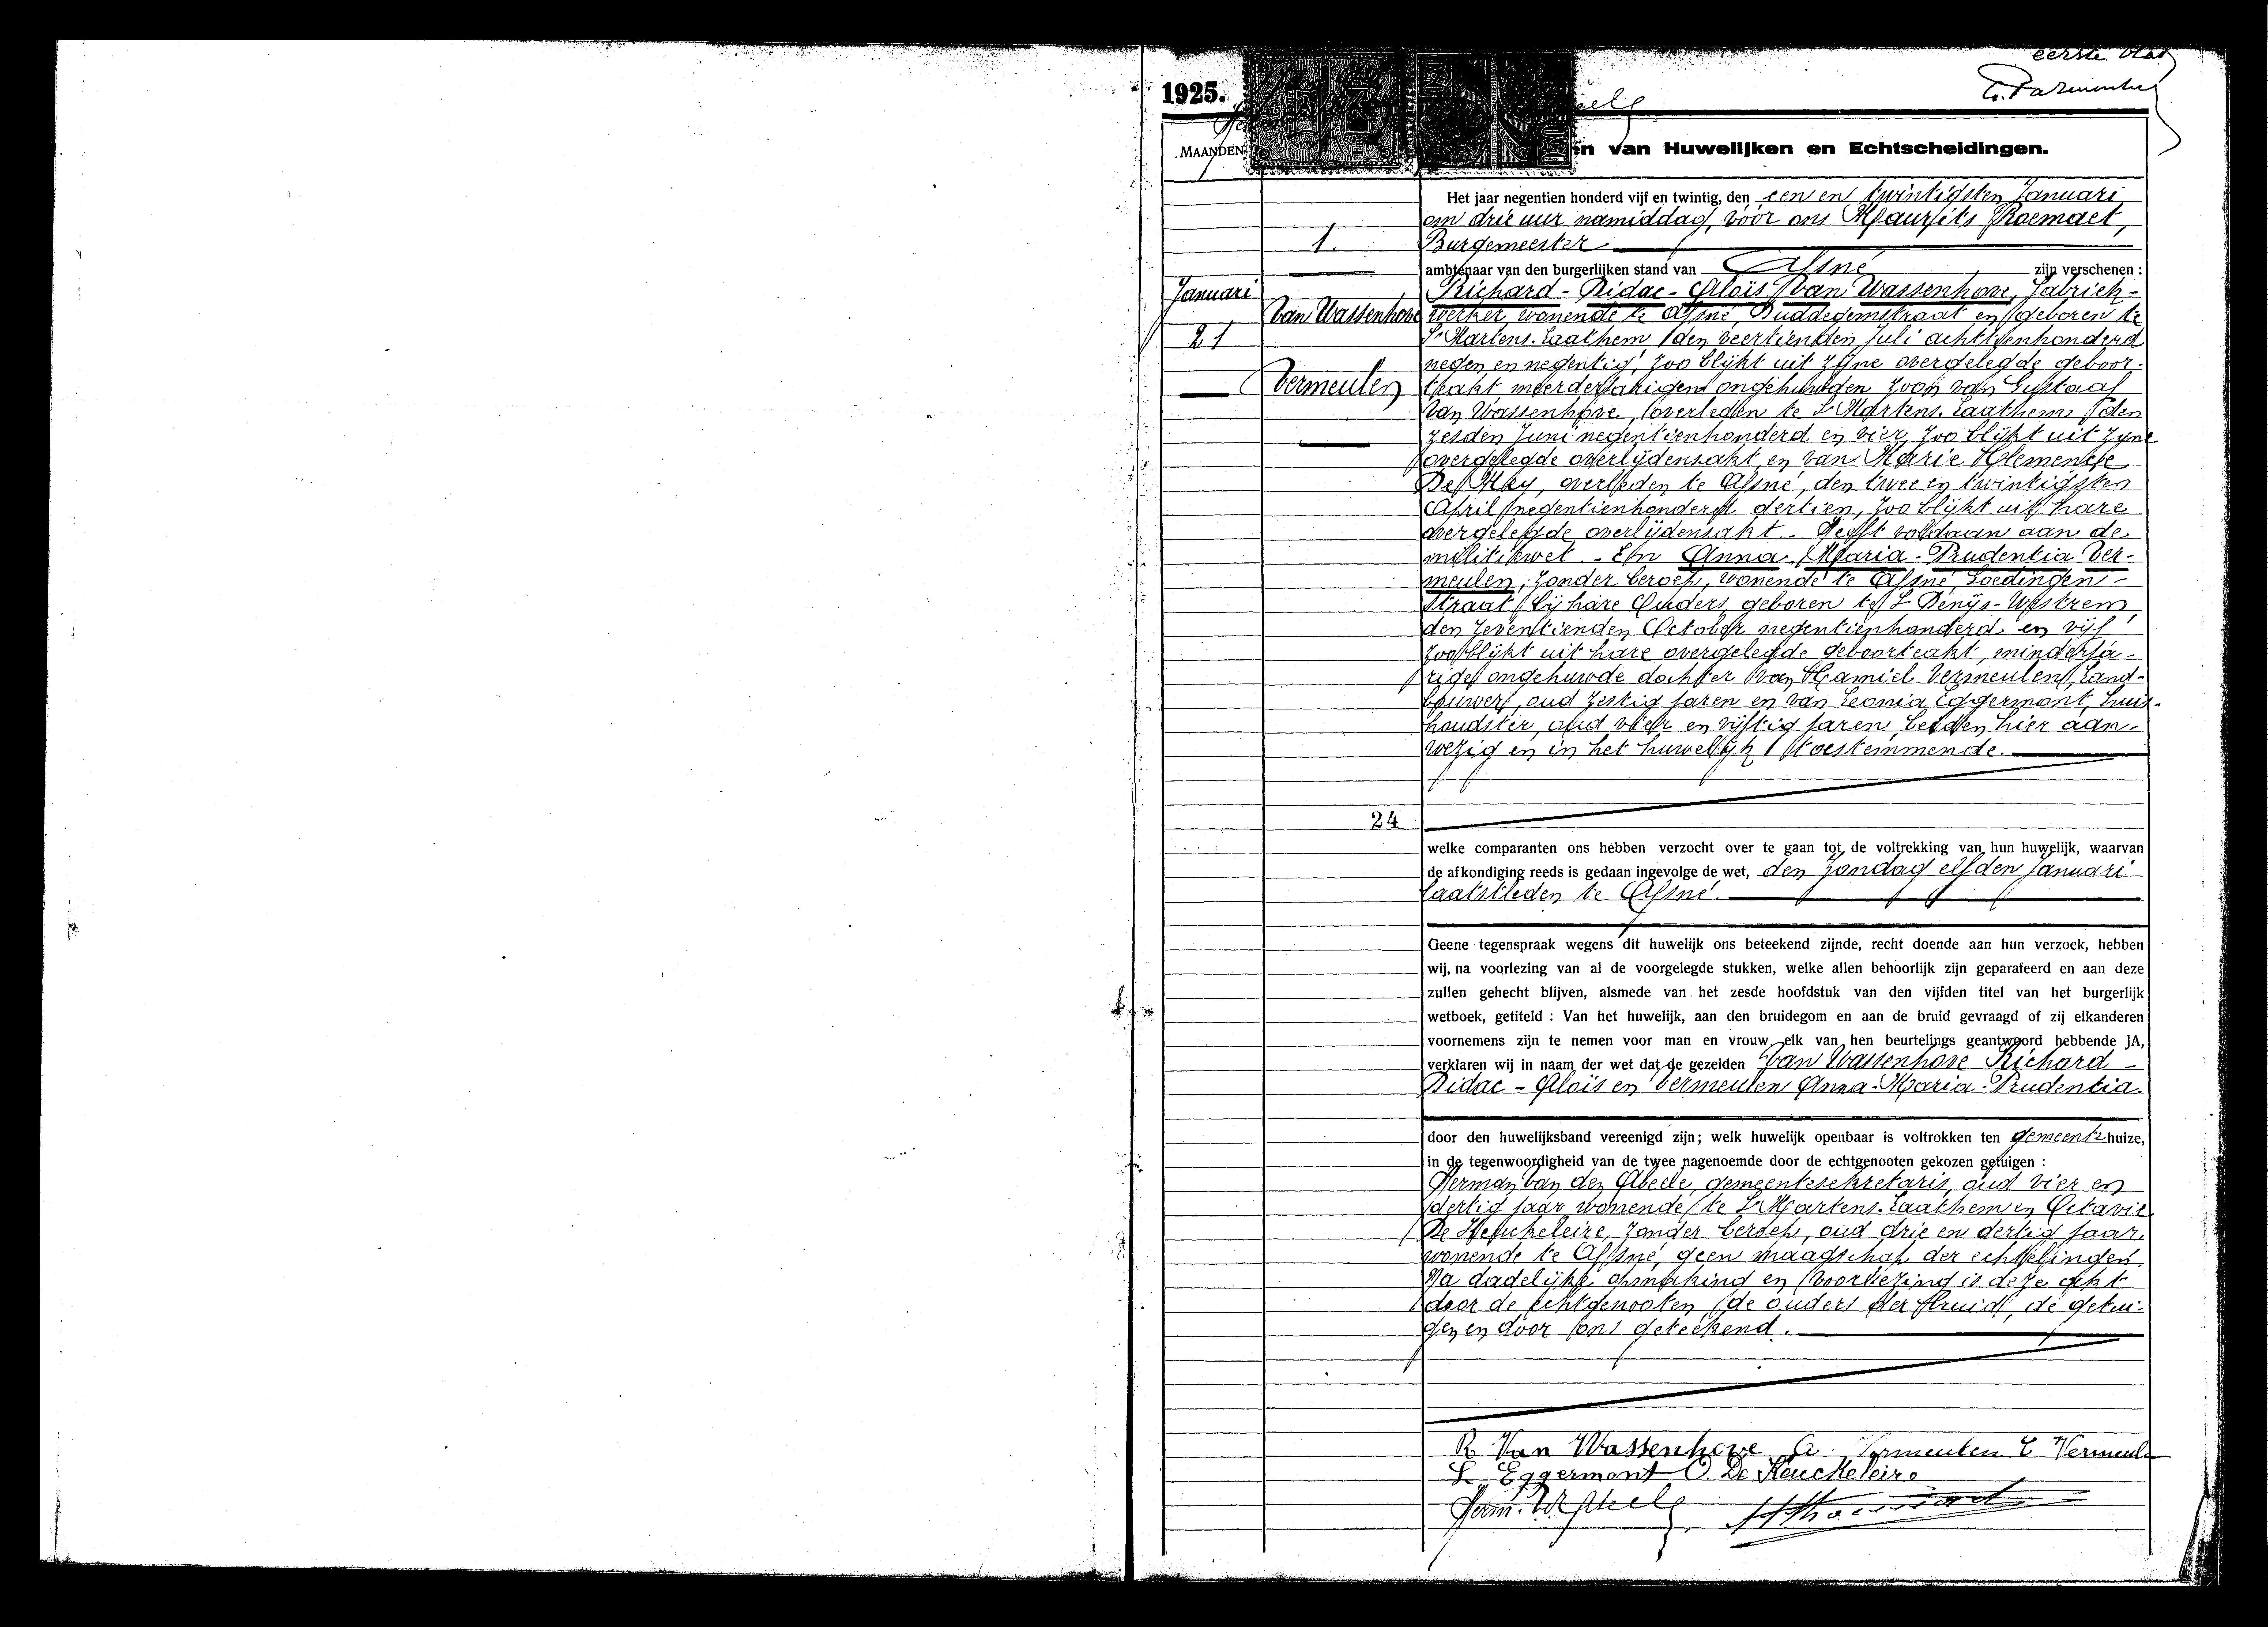 eerste blad
1925.
MAANDEN
van Huwelijken en Echtscheidingen.
Het jaar negentien honderd vijf en twintig, den een en twintigsten Januari
om drie uur namiddag, vóór ons Maurits
1.
Burgemeester
ambtenaar van den burgerlijken stand van Afsné zijn verschenen :
Januari
21
Van Wassenhove
Vermeulen
Richard - Didac - Aloïs Van Wassenhove, fabriek-
werker, wonende te Afsné, Duddegemstraat en geboren te
St Martens-Laathem den veertienden Juli achttienhonderd
negen en negentig, zoo blijkt uit zijne overgelegde geboor-
teakt, meerderjarigen ongehuwden zoon van Gustaaf
Van Wassenhove, overleden te St Martens-Laathem den
zesden Juni negentienhonderd en vier, zoo blijkt uit zijne
overgelegde overlijdensakt, en van Marie Clemence
De Mey, overleden te Afsné, den twee en twintigsten
April negentienhonderd dertien, zoo blijkt uit hare
overgelegde overlijdensakt. Heeft voldaan aan de
militiewet. - En Anna - Maria - Prudentia Ver-
meulen, zonder beroep, wonende te Afsné Goedingen-
straat bij hare Ouders, geboren te St Denijs-Westrem,
den zeventienden October negentienhonderd en vijf
zoo blijkt uit hare overgelegde geboorteakt, minderja-
rige ongehuwde dochter van Kamiel Vermeulen, land-
bouwer, oud zestig jaren en van Leonia Eggermont, huis-
houdster, oud vier en vijftig jaren, beiden hier aan-
wezig en in het huwelijk toestemmende.
24
welke comparanten ons hebben verzocht over te gaan tot de voltrekking van hun huwelijk, waarvan
de afkondiging reeds is gedaan ingevolge de wet, den Zondag elfden Januari
laatstleden te Afsné.
Geene tegenspraak wegens dit huwelijk ons beteekend zijnde, recht doende aan hun verzoek, hebben
wij, na voorlezing van al de voorgelegde stukken, welke allen behoorlijk zijn geparafeerd en aan deze
zullen gehecht blijven, alsmede van het zesde hoofdstuk van den vijfden titel van het burgerlijk
wetboek, getiteld : Van het huwelijk, aan den bruidegom en aan de bruid gevraagd of zij elkanderen
voornemens zijn te nemen voor man en vrouw, elk van hen beurtelings geantwoord hebbende JA,
verklaren wij in naam der wet dat de gezeiden Van Wassenhove Richard -
Didac - Aloïs en Vermeulen Anna - Maria - Prudentia.
door den huwelijksband vereenigd zijn; welk huwelijk openbaar is voltrokken ten gemeentehuize,
in de tegenwoordigheid van de twee nagenoemde door de echtgenooten gekozen getuigen :
Herman Van den Abeele, gemeentesekretaris, oud vier en
dertig jaar wonende te St Martens-Laathem en Octavie
De Keukeleire, zonder beroep, oud drie en dertig jaar,
wonende te Afsné, geen maagschap der echtelingen.
Na dadelijke opmaking en voorlezing is deze akt
door de echtgenooten, de ouders der bruid, de getui-
gen en door ons geteekend.
R Van Wassenhove A. Vermeulen C Vermeulen
L Eggermont O. De Keuckeleire
Herm. Vd Abeele